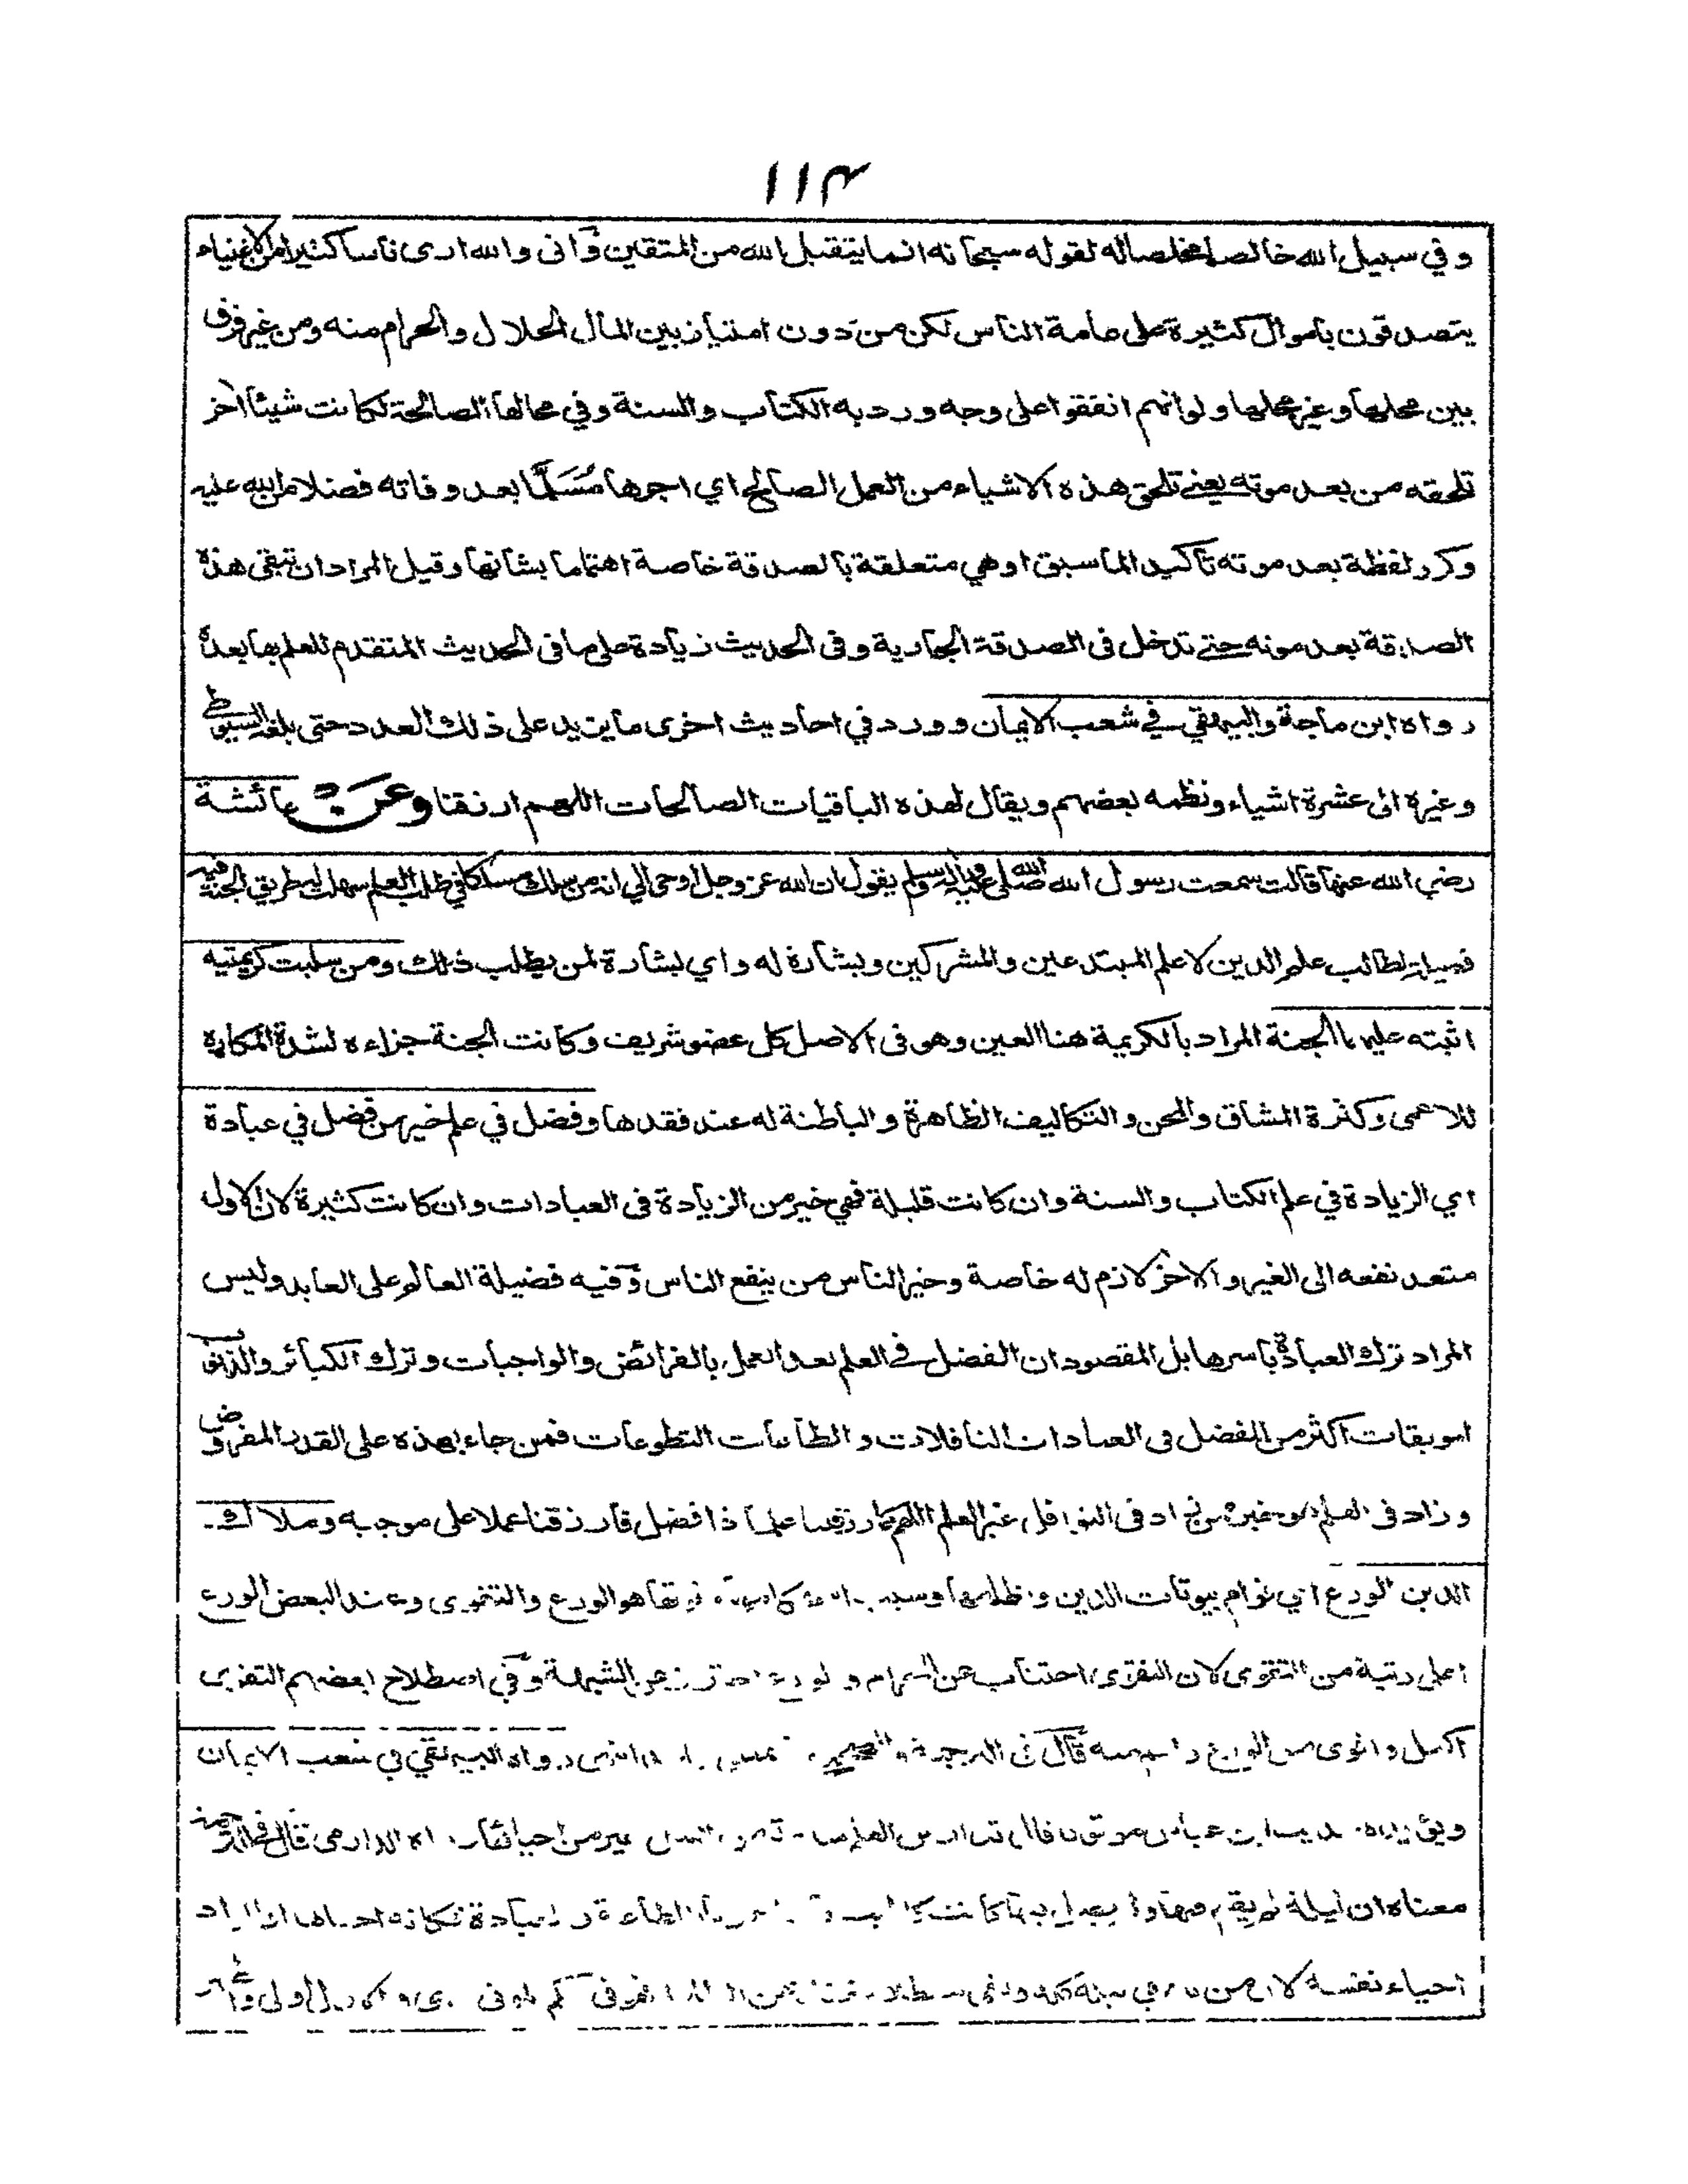 ١١٤
وفي سبيل الله خالصا مخلصا له لقوله سبحانه انما يتقبل الله من المتقين وانى والله ارى ناسا كثيرا من الاغنياء
يتصدقون باموال كثيرة على عامة الناس لكن من دون امتياز بين المال الحلال والحرام منه ومن غير فرق
بين محلها وغير محلها ولو انهم انفقوا على وجه ورد به الكتاب والسنة وفي محالها الصالحة لكانت شيئا آخر
تلحقه من بعد موته يعنے تلحق هذه الاشياء من العمل الصالح اي اجرها مسلما بعد وفاته فضلا من الله عليه
وكرر لفظة بعد موته تأكيدا لما سبق او هي متعلقة بالصدقة خاصة اهتماما بشانها وقيل المراد ان تبقى هذه
الصدقة بعد موته حتے تدخل فى الصدقة الجارية وفى الحديث زيادة على ما فى الحديث المتقدم للعلم بها بعده
رواه ابن ماجة والبيهقي في شعب الايمان وورد في احاديث اخرى ما يزيد على ذلك العدد حتى بلغه السيوطي
وغيره الى عشرة اشياء ونظمه بعضهم ويقال لهذه الباقيات الصالحات اللهم ارزقنا وعن عائشة
رضي الله عنها قالت سمعت رسول الله صلى الله عليه واله وسلم يقول ان الله عز وجل اوحى الي انه من سلك مسلكا في طلب العلم سهلت له طريق الجنة فيه
فضيلة لطالب علم الدين لا علم المبتدعين والمشركين وبشارة له واي بشارة لمن يطلب ذلك ومن سلبت كريمتيه
اثبته عليهما الجنة المراد بالكريمة هنا العين وهو فى الاصل كل عضو شريف وكانت الجنة جزاءه لشدة المكاره
للاعمى وكثرة المشاق والمحن والتكاليف الظاهرة والباطنة له عند فقدها وفضل في علم خير من فضل في عبادة
اي الزيادة في علم الكتاب والسنة وان كانت قليلة فهي خير من الزيادة فى العبادات وان كانت كثيرة لان الاول
متعد نفعه الى الغير والاخر لازم له خاصة وخير الناس من ينفع الناس وفيه فضيلة العالم على العابد وليس
المراد ترك العبادة باسرها بل المقصود ان الفضل في العلم بعد العمل بالفرائض والواجبات وترك الكبائر والذنوب
الموبقات اكثر من الفضل فى العبادات النافلات والطاعات التطوعات فمن جاء بهذه على القدر المفروض
وزاد فى العلم هو خير ممن زاد فى النوافل غير العلم اللهم كما رزقتنا علما ذا فضل فارزقنا عملا على موجبه وملاك
الدين الورع اي قوام بيوتات الدين وهو الورع والتقوى وعند البعض الورع
اعلى رتبة من التقوى لان التقوى اجتناب عن الحرام والورع عن الشبهة وفي اصطلاح بعضهم التقوى
اكمل واقوى من الورع قال فى الترجمة رواه البيهقي في شعب الايمان
ويؤيده حديث ابن عباس موقوفا قال تدارس العلم ساعة من الليل خير من احيائها رواه الدارمى قال في الترجمة
معناه ان ليلة لم يقم فيها المراد
احياء نفسه